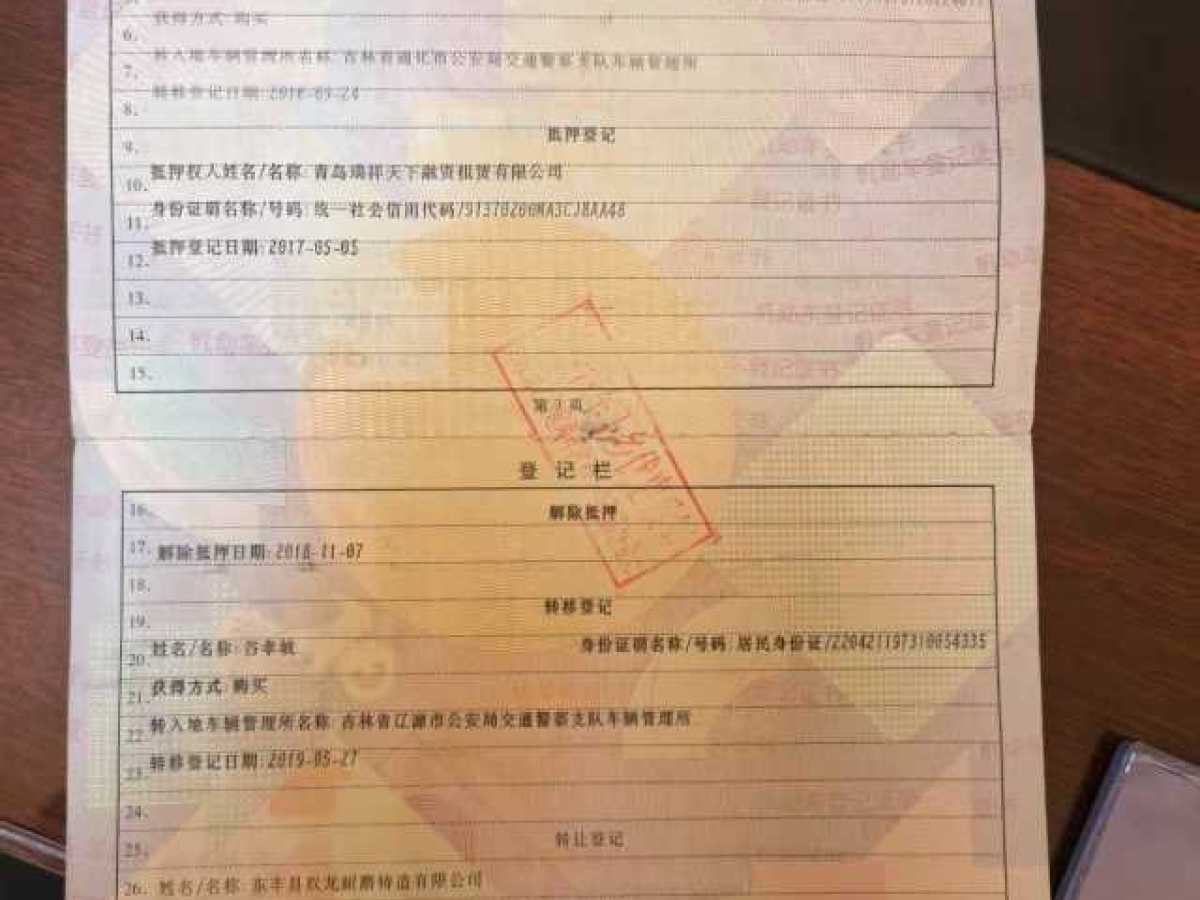 6.
获得方式:购买
7.
转入地车辆管理所名称:吉林省通化市公安局交通警察支队车辆管理所
8.
转移登记日期:2016-03-24
9.
抵押登记
10.
抵押权人姓名/名称:青岛瑞祥天下融资租赁有限公司
11.
身份证明名称/号码:统一社会信用代码/91370200MA3CJ8AA48
12.
抵押登记日期:2017-05-05
13.
14.
15.
第 3 页
登 记 栏
16.
解除抵押
17.
解除抵押日期:2018-11-07
18.
19.
转移登记
20.
姓名/名称:谷孝敏 身份证明名称/号码:居民身份证/220421197310054335
21.
获得方式:购买
22.
转入地车辆管理所名称:吉林省辽源市公安局交通警察支队车辆管理所
23.
转移登记日期:2019-05-27
24.
25.
转让登记
26.
姓名/名称:东丰县双龙耐磨铸造有限公司